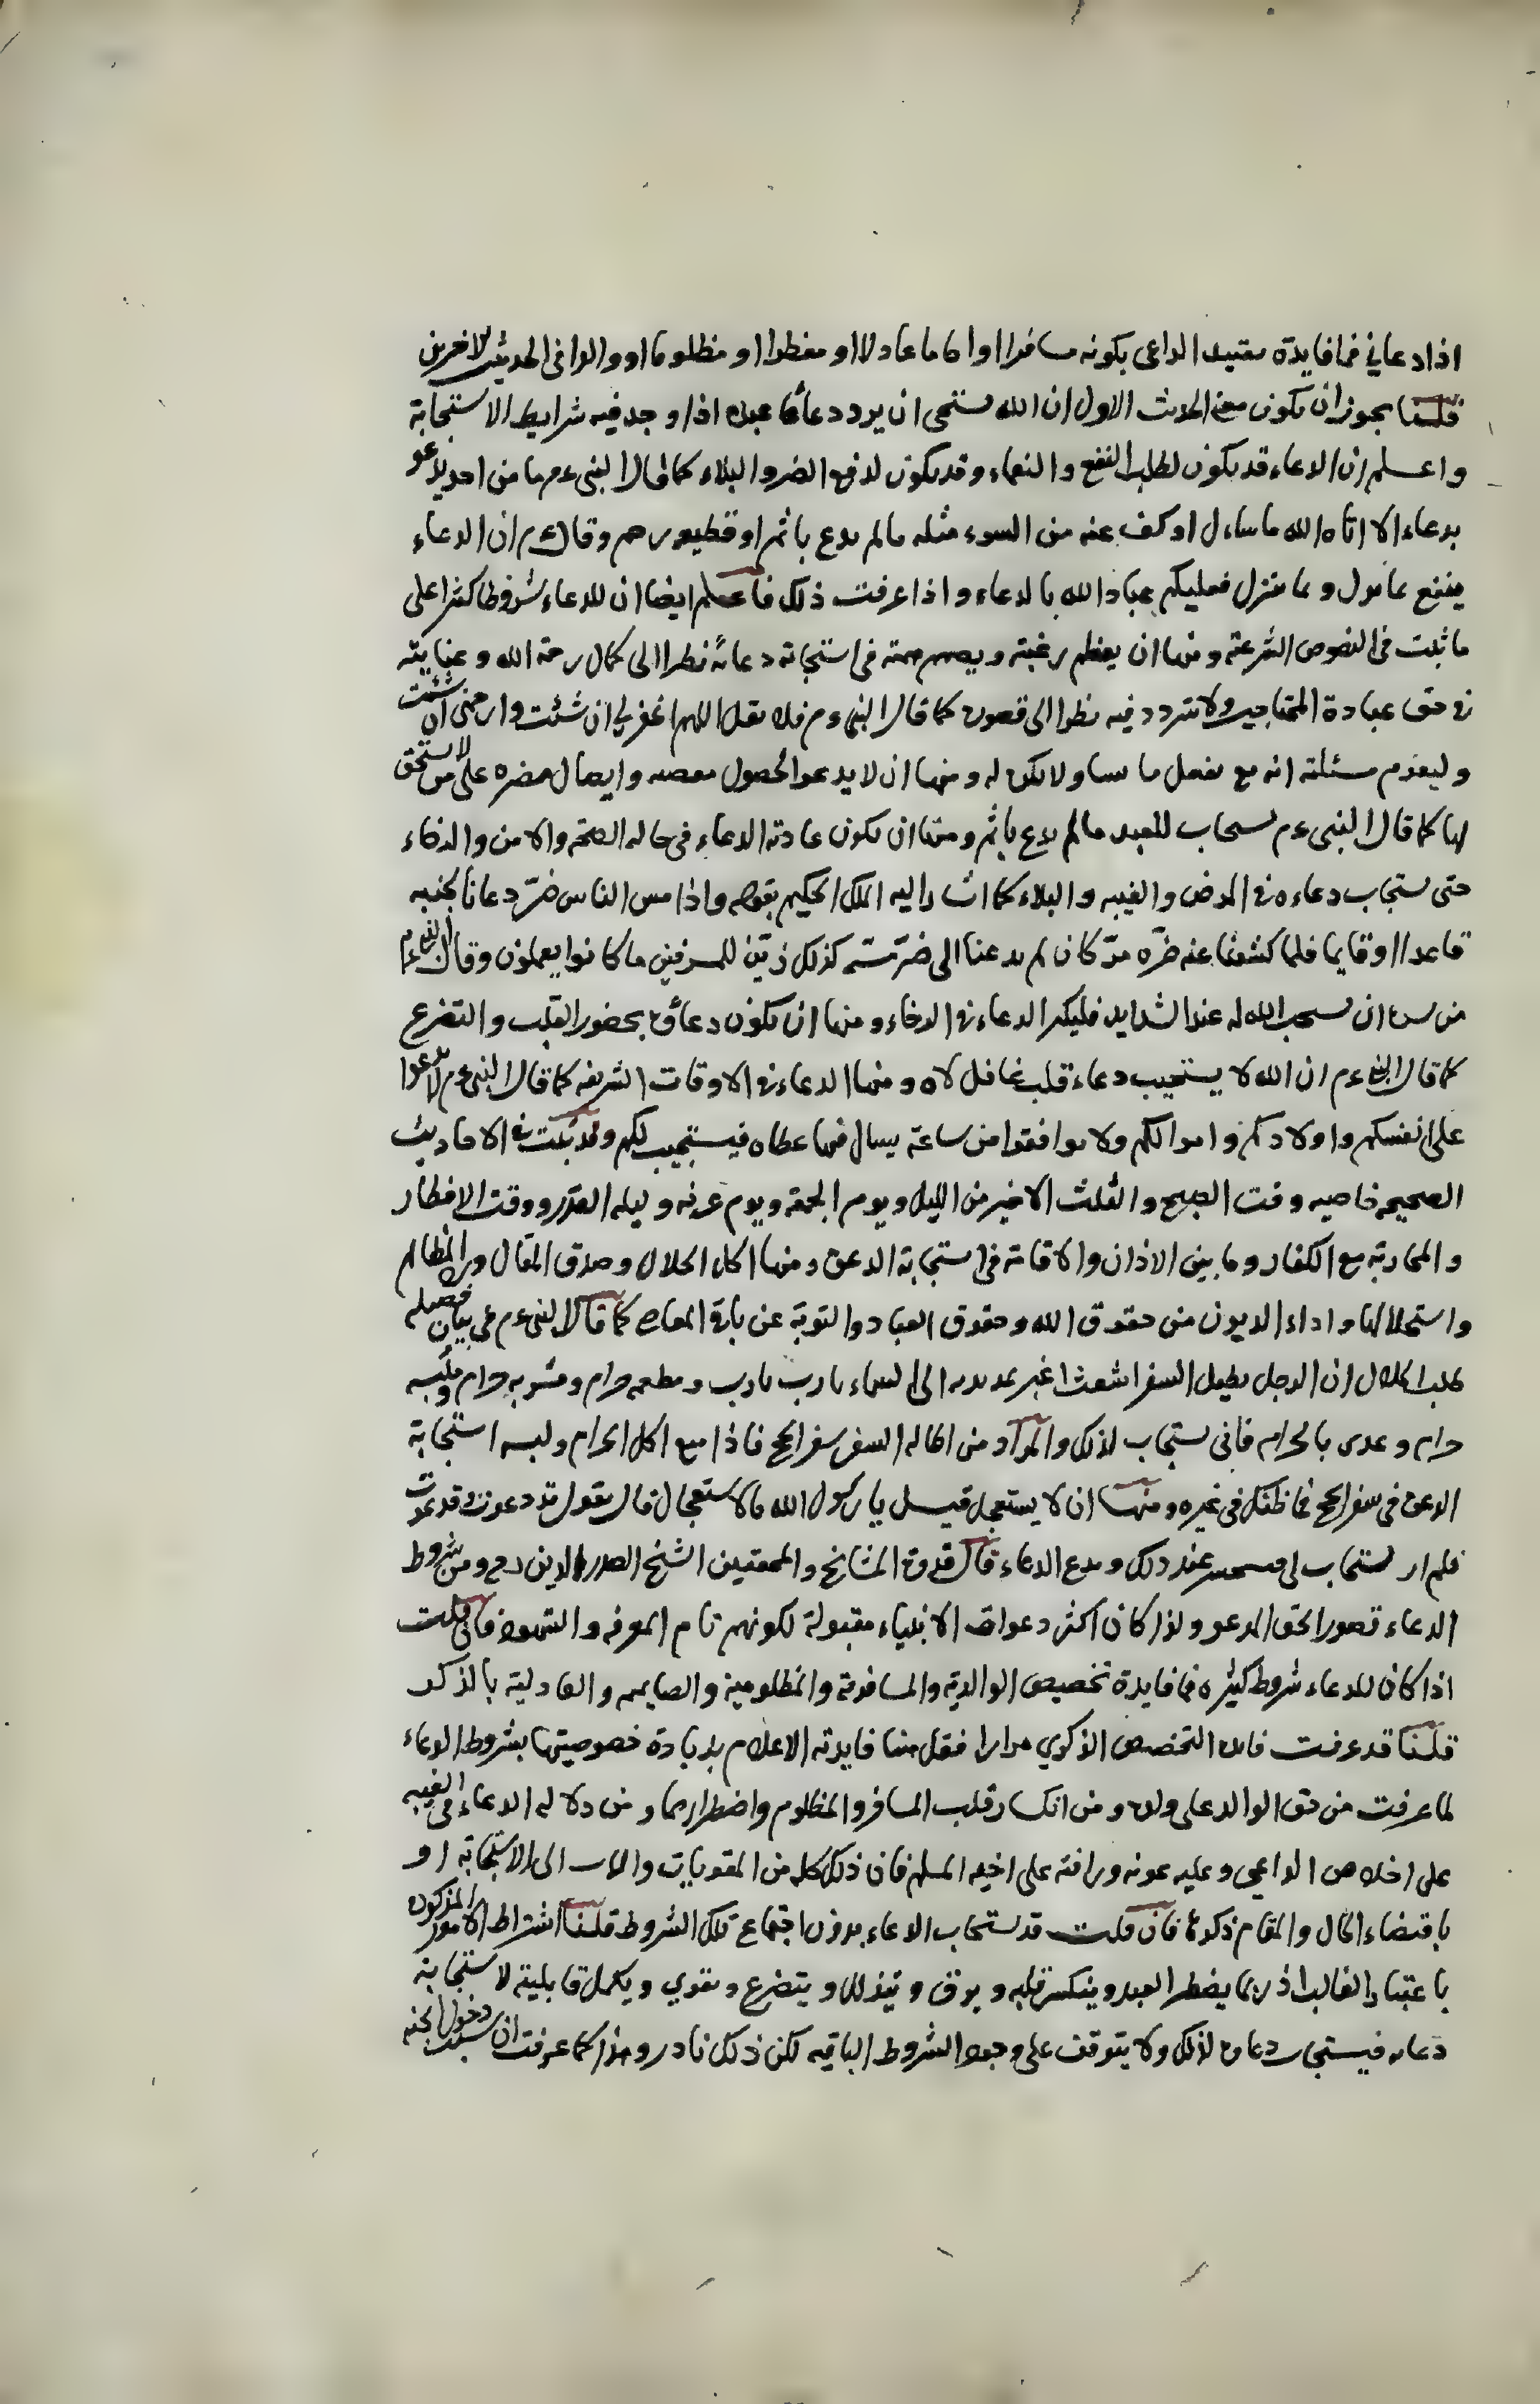 اذا دعاني فما فايدة تقييد الداعي بكونه مسافرا او اماما عادلا او مفطرا او مظلوما او والدا في الحديثين الاخرين
قلنا يجوز ان يكون معنى الحديث الاول ان الله يستحي ان يرد دعاء عبده اذا وجد فيه شرايط الاستجابة
واعلم ان الدعاء قد يكون لطلب النفع والنعماء وقد يكون لدفع الضر والبلاء كما قال النبي عم ما من احد يدعو
بدعاء الا اتاه الله ما سال او كف عنه من السوء مثله ما لم يدع باثم او قطيعة رحم وقال عم ان الدعاء
ينفع مما نزل ومما ينزل فعليكم عباد الله بالدعاء واذا عرفت ذلك فاعلم ايضا ان للدعاء شروطا كثيرا على
ما ثبت في النصوص الشرعية ومنها ان يعظم رغبته ويصمم همته في استجابة دعائه نظرا الى كمال رحمة الله وعنايته
في حق عباده المحتاجين ولا يتردد فيه نظرا الى قصوره كما قال النبي عم فلا يقل اللهم اغفر لي ان شئت وارحمني ان شئت
وليعزم مسئلته انه يفعل ما يشاء ولا مكره له ومنها ان لا يدعو لحصول معصية وايصال مضرة على من لا يستحق
لها كما قال النبي عم يستجاب للعبد ما لم يدع باثم ومنها ان يكون عادته الدعاء في حالة الصحة والامن والرخاء
حتى يستجاب دعاءه في المرض والغيبة والبلاء كما اشار اليه الملك الحكيم بقوله واذا مس الناس ضر دعانا لجنبه
قاعدا او قايما فلما كشفنا عنه ضره مر كان لم يدعنا الى ضر مسه كذلك زين للمسرفين ما كانوا يعملون وقال النبي عم
من سره ان يستجيب الله له عند الشدايد فليكثر الدعاء في الرخاء ومنها ان يكون دعاؤه بحضور القلب والتضرع
كما قال النبي عم ان الله لا يستجيب دعاء قلب غافل لاه ومنها الدعاء في الاوقات الشريفة كما قال النبي عم لا تدعوا
على انفسكم واولادكم واموالكم ولا توافقوا من ساعة يسال فيها عطاء فيستجيب لكم وقد ثبت في الاحاديث
الصحيحة خاصية وقت الصبح والثلث الاخير من الليل ويوم الجمعة ويوم عرفة وليلة القدر ووقت الافطار
والمحاربة مع الكفار وما بين الاذان والاقامة في استجابة الدعوة ومنها اكل الحلال وصدق المقال ورد المظالم
واستحلالها واداء الديون من حقوق الله وحقوق العباد والتوبة عن باقي المعاصي كما قال النبي عم في بيان فضيلة
طلب الحلال ان الرجل يطيل السفر اشعث اغبر يمد يديه الى السماء يا رب يا رب ومطعمه حرام ومشربه حرام وملبسه
حرام وغدي بالحرام فانى يستجاب لذلك والمراد من اطالة السفر سفر الحج فاذا منع اكل الحرام ولبسه استجابة
الدعوة في سفر الحج فما ظنك في غيره ومنها ان لا يستعجل قيل يا رسول الله ما الاستعجال قال يقول قد دعوت وقد دعوت
فلم ار يستجاب لي فيستحسر عند ذلك ويدع الدعاء قال قدوة المشايخ والمحققين الشيخ صدر الدين رح ومن شروط
الدعاء تصور الحق المدعو ولذا كان اكثر دعوات الانبياء مقبولة لكونهم تام المعرفة والشهود فان قلت
اذا كان للدعاء شروط كثيرة فما فايدة تخصيص الوالدية والمسافرية والمظلومية والصايمية والعادلية بالذكر
قلنا قد عرفت فايدة التخصيص الذكري مرارا فقل هنا فايدته الاعلام بزيادة خصوصيتها بشروط الدعاء
لما عرفت من حق الوالد على ولده ومن انكسار قلب المسافر والمظلوم واضطرارهما ومن دلالة الدعاء في الغيبة
على اخلاص الداعي وعليه عونه ورافته على اخيه المسلم فان ذلك كله من المقويات الى الاستجابة او
باقتضاء الحال والمقام ذكرها فان قلت قد يستجاب الدعاء بدون اجتماع تلك الشروط قلنا اشتراط الامور المذكورة
باعتبار الغالب اذ ربما يضطر العبد وينكسر قلبه ويرق ويتذلل ويتضرع ويقوي ويكمل قابليته لاستجابة
دعائه فيستجاب دعاؤه لذلك ولا يتوقف على وجود الشروط الباقية لكن ذلك نادر وهذا كما عرفت ان سبب دخول الجنة